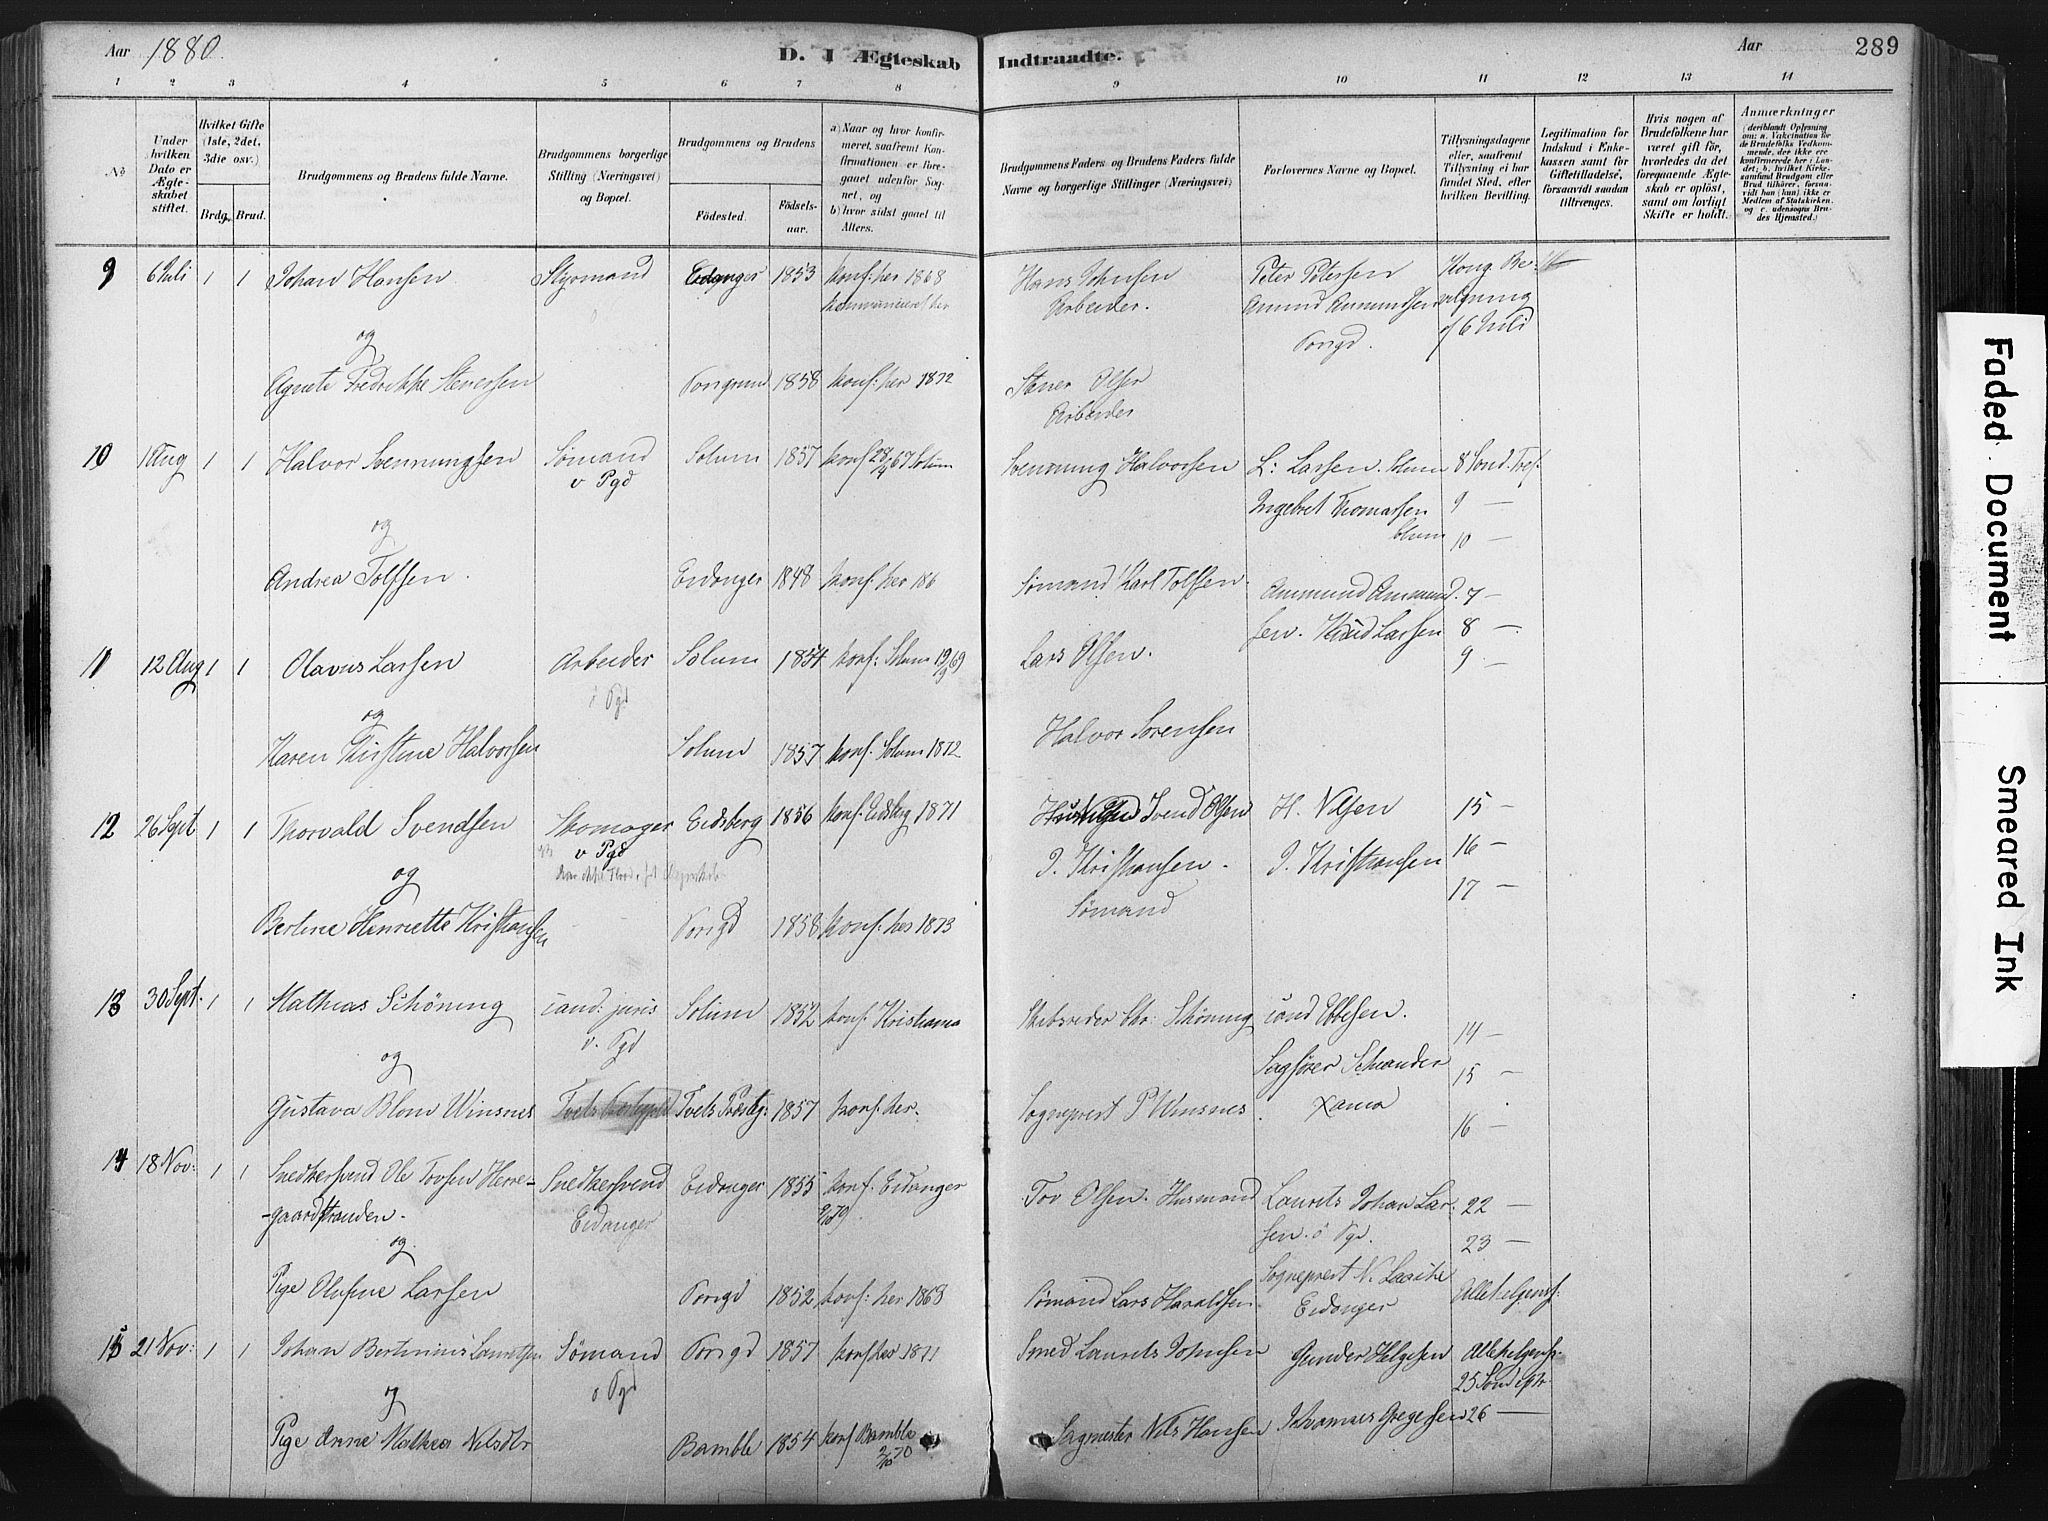 Aar 1880. D. I Ægteskab Indtraadte. Aar 289
1 2 3 4 5 6 7 8 9 10 11 12 13 14
№
Under hvilken Dato er Ægteskabet stiftet.
Hvilket Gifte (1ste, 2det, 3die osv.)
Brdg. Brud.
Brudgommens og Brudens fulde Navne.
Brudgommens borgerlige Stilling (Næringsvei) og Bopæl.
Brudgommens og Brudens
Födested. Födselsaar.
a) Naar og hvor konfirmeret, saafremt Konfirmationen er foregaaet udenfor Sognet, og
b) hvor sidst gaaet til Alters.
Brudgommens Faders og Brudens Faders fulde Navne og borgerlige Stillinger (Næringsvei)
Forlovernes Navne og Bopæl.
Tillysningsdagene eller, saafremt Tillysning ei har fundet Sted, efter hvilken Bevilling.
Legitimation for Indskud i Enkekassen samt for Giftetilladelse, forsaavidt saadan tiltrænges.
Hvis nogen af Brudefolkene har været gift för, hvorledes da det foregaaende Ægteskab er oplöst, samt om lovligt Skifte er holdt.
Anmærkninger
9 6 Juli 1 1 Johan Hansen Styrmand Eidanger 1853 konf: her 1868 Hans Johnsen Peter Petersen Kong. Be-
kommuniceret her Arbeider. Amund Amundsen vilgning
og Porsgd. af 6 Juli
Agnete Fredrikke Stenersen Porsgrund 1858 konf: her 1872 Stener Olsen
Arbeider
10 1 Aug 1 1 Halvor Svennungsen Sømand Solum 1857 konf 28/9 67 Solum Svennung Halvorsen L: Larsen. Solum 8 Sond. Tref.
v Pgd Ingebret Thomassen 9 —
og Solum 10 —
Andrea Tolfsen. Eidanger 1848 konf: her 186 Sømand Karl Tolfsen. Ammund Ammund- 7 —
sen. Knud Larsen 8 —
11 12 Aug 1 1 Olavus Larsen Arbeider Solum 1854 konf: Solum 19/9 69 Lars Olsen. 9 —
i Pgd
og
Karen Kirstine Halvorsen Solum 1857 konf: Solum 1872 Halvor Sorensen
12 26 Sept 1 1 Thorvald Svendsen Skomager Eidsberg 1856 konf. Eidsberg 1871 Svend Olsen H. Nilsen 15 —
v Pgd J. Kristiansen. J. Kristiansen 16 —
og Sømand 17 —
Berline Henriette Kristiansen Porsgd 1858 konf: her 1873
13 30 Sept. 1 1 Mathias Schöning cand: juris Solum 1852 konf: Kristiania Skibsreder Chr: Schöning cand Ebbesen. 14 —
v. Pgd
og Sagfører Schiander 15 —
Gustava Blom Winsnes Tvets Præstg: 1857 konf: her. Sogneprest P Winsnes. Xania 16 —
14 18 Nov: 1 1 Snedkersvend Ole Tovsen Herre- Snedkersvend Eidanger 1855 konf. Eidanger Tov Olsen. Husmand Laurits Johan Lar- 22 —
gaardstranden. Eidanger 2/10 70. sen. i Pgr. 23 —
og
Pige Olufine Larsen Porsgd 1852 konf: her 1868 Sømand Lars Haraldsen Sogneprest N. Laache Allehelgensf:
Eidanger
15 21 Nov: 1 1 Johan Bertinius Lauritsen Sømand Porsgd 1857 konf her 1871 Smed Laurits Johnsen Gunder Helgesen Allehelgensf.
i Pgd 25 Sond eftr
og
Pige Anne Mathea Nilsdtr Bamble 1854 konf Bamble 2/10 70 Sagmester Nils Hansen Thomas Gregersen 26 —
Faded Document
Smeared Ink